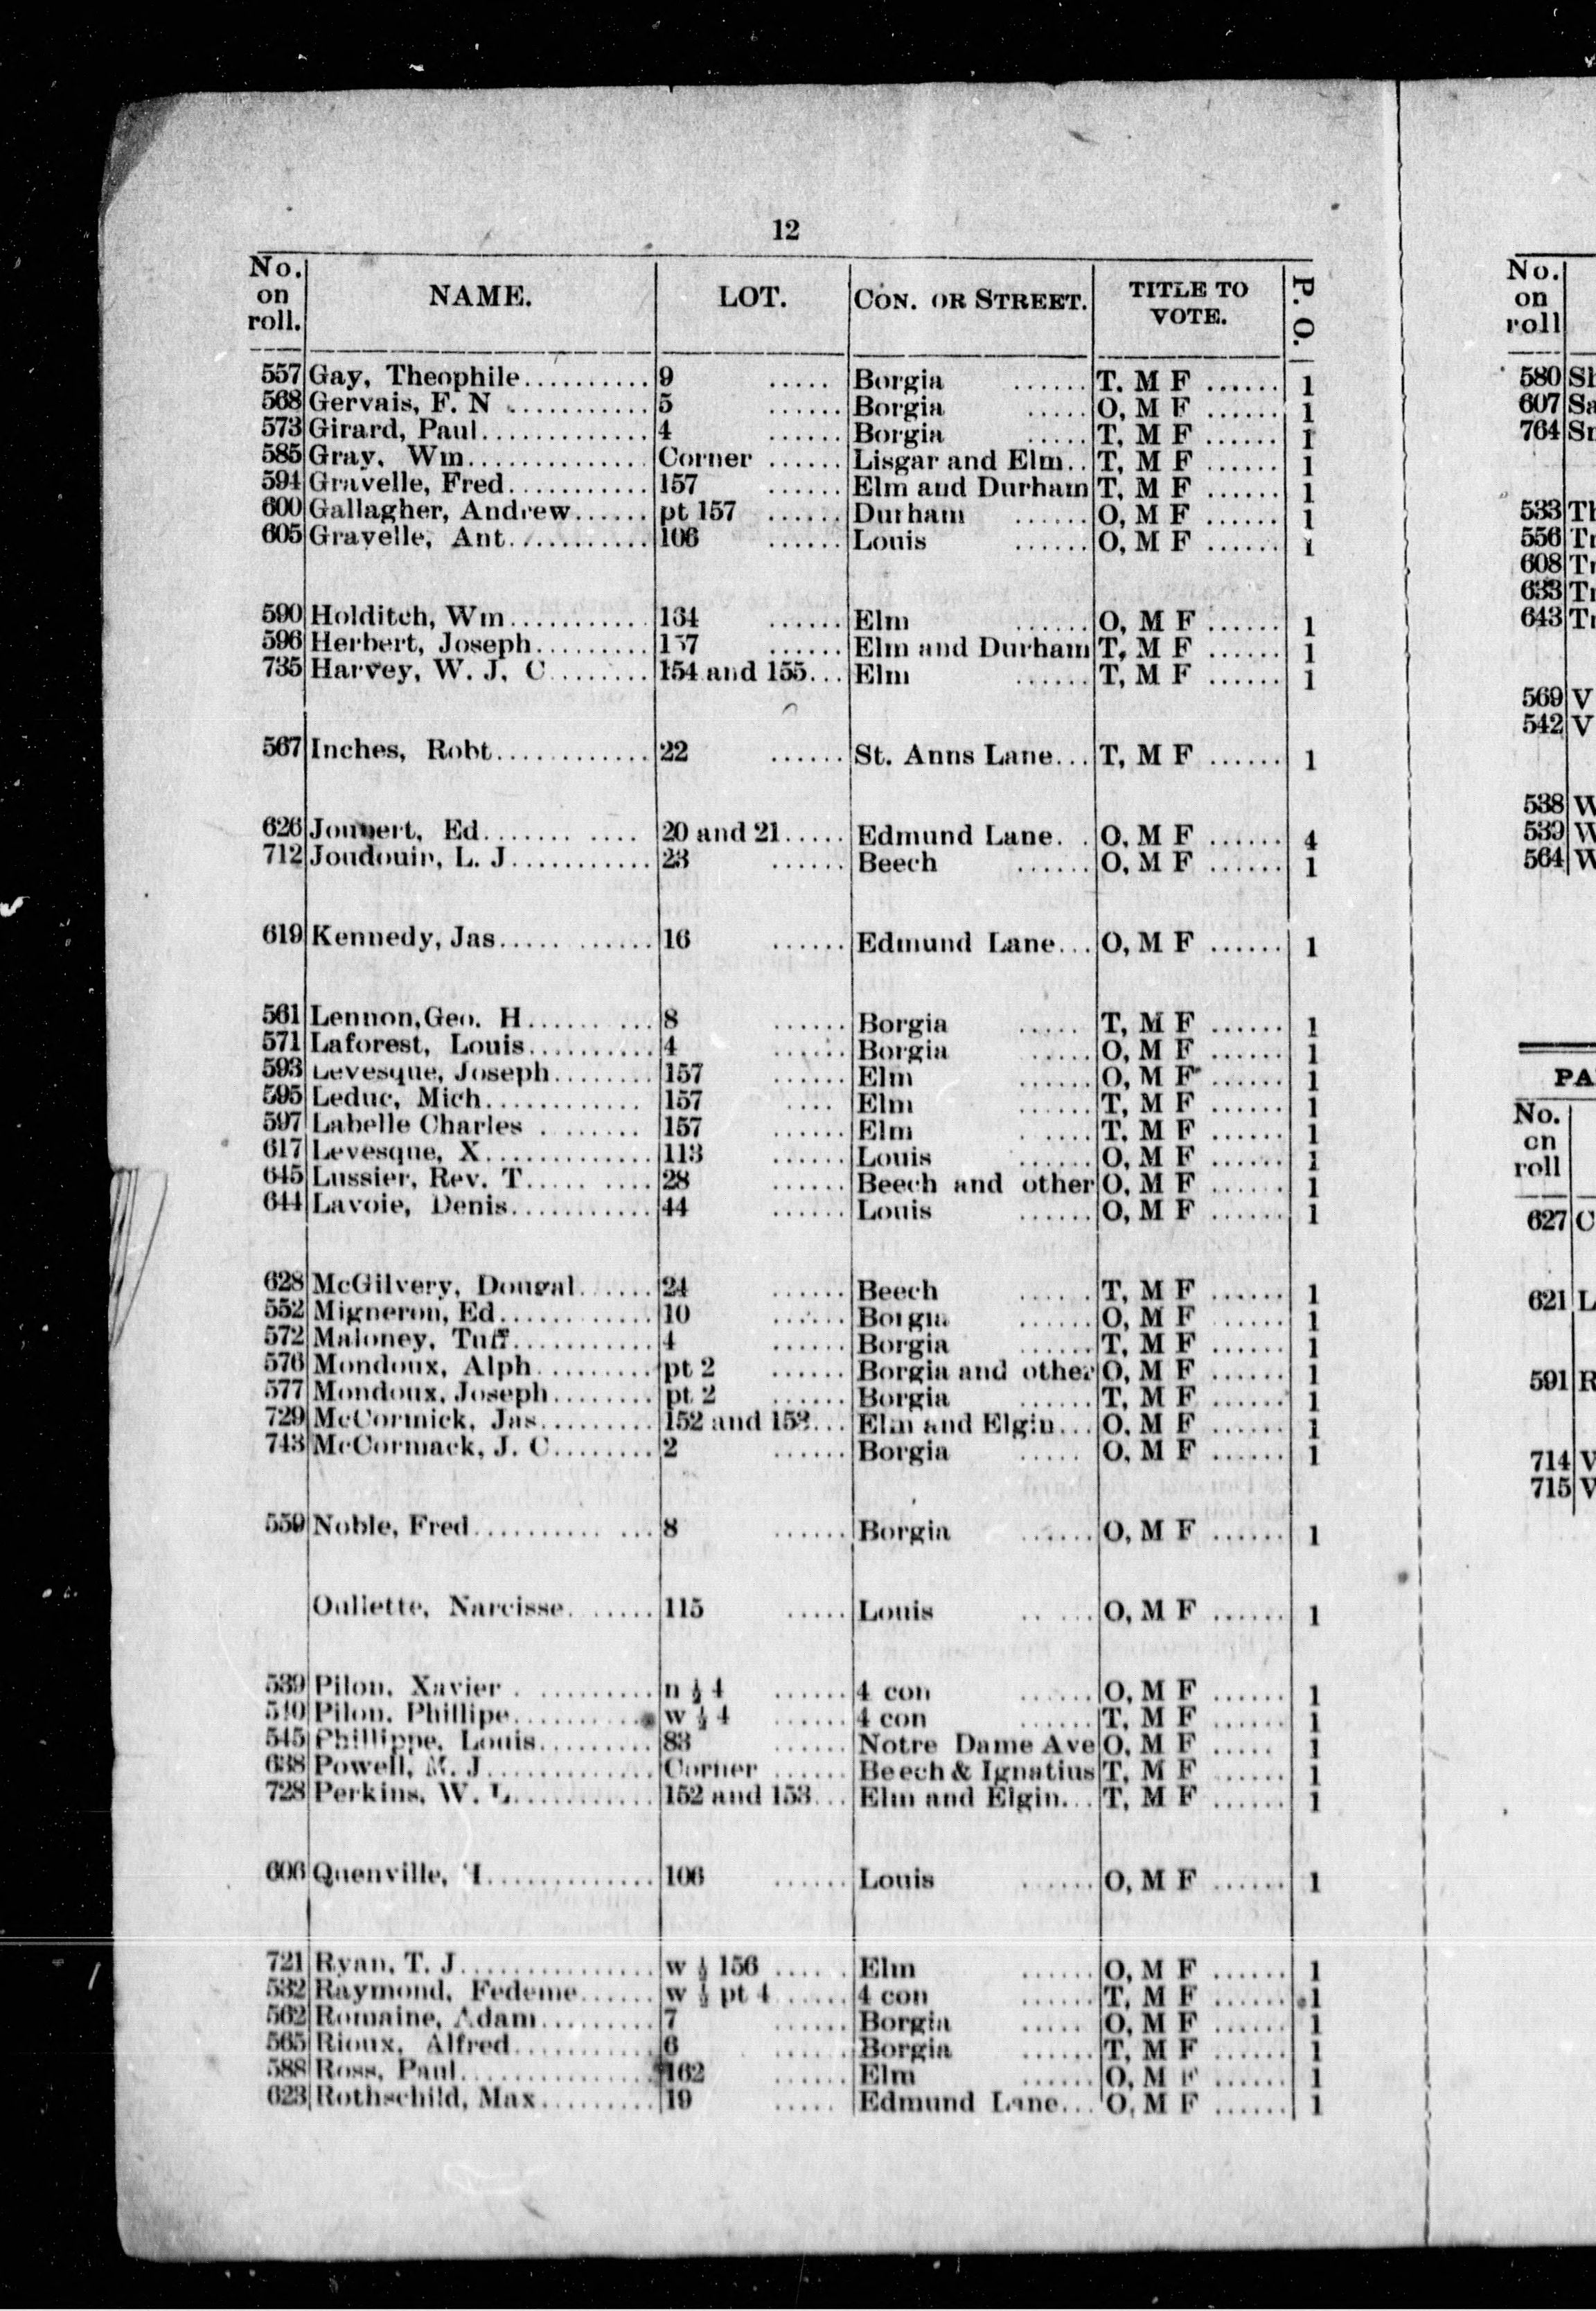 12
No. on roll. NAME. LOT. CON. OR STREET. TITLE TO VOTE. P. O.
557 Gay, Theophile.......... 9 ..... Borgia ...... T. M F ...... 1
568 Gervais, F. N ........... 5 ...... Borgia ..... O, M F ...... 1
573 Girard, Paul............. 4 ...... Borgia ..... T, M F ...... 1
585 Gray, Wm............... Corner ...... Lisgar and Elm.. T, M F ...... 1
594 Gravelle, Fred........... 157 ...... Elm and Durham T, M F ...... 1
600 Gallagher, Andrew...... pt 157 ...... Durham ...... O, M F ...... 1
605 Gravelle, Ant........... 106 ...... Louis ...... O, M F ...... 1
590 Holditch, Wm........... 164 ...... Elm ...... O, M F ...... 1
596 Herbert, Joseph......... 157 ...... Elm and Durham T, M F ...... 1
735 Harvey, W. J. C........ 154 and 155... Elm ...... T, M F ...... 1
567 Inches, Robt............ 22 ...... St. Anns Lane... T, M F ...... 1
626 Ed............ 20 and 21..... Edmund Lane. . O, M F ...... 4
712 Joudouin, L. J........... 23 ...... Beech ...... O, M F ...... 1
619 Kennedy, Jas............ 16 ...... Edmund Lane... O, M F ...... 1
561 Lennon, Geo. H......... 8 ...... Borgia ..... T, M F ...... 1
571 Laforest, Louis.......... 4 ...... Borgia ..... O, M F ...... 1
593 Levesque, Joseph........ 157 ...... Elm ...... O, M F ...... 1
595 Leduc, Mich............ 157 .... Elm ...... T, M F ...... 1
597 Labelle Charles ........ 157 ...... Elm ..... T. M F ...... 1
617 Levesque, X............. 113 ...... Louis ...... O, M F ...... 1
645 Lussier, Rev. T......... 28 ...... Beech and other O, M F ...... 1
644 Lavoie, Denis........... 44 ...... Louis ...... O, M F ...... 1
628 McGilvery, Dougal...... 24 ...... Beech ...... T, M F ...... 1
552 Migneron, Ed............ 10 ...... Borgia ...... O, M F ...... 1
572 Maloney, Tuff........... 4 ...... Borgia ...... T, M F ...... 1
576 Mondoux, Alph......... pt 2 ...... Borgia and other O, M F ...... 1
577 Mondoux, Joseph........ pt 2 ...... Borgia ...... T, M F ...... 1
729 McCormick, Jas......... 152 and 153... Elm and Elgin... O, M F ...... 1
743 McCormack, J. C........ 2 ...... Borgia ..... O, M F ...... 1
559 Noble, Fred............. 8 ...... Borgia ...... O, M F ...... 1
Oullette, Narcisse....... 115 ..... Louis ...... O, M F ...... 1
539 Pilon, Xavier .......... n ½ 4 ...... 4 con ...... O, M F ...... 1
540 Pilon, Phillipe.......... w ½ 4 ...... 4 con ...... T, M F ...... 1
545 Phillippe, Louis......... 83 ...... Notre Dame Ave O, M F ..... 1
638 Powell, M. J............. Corner ...... Beech & Ignatius T, M F ...... 1
728 Perkins, W. L........... 152 and 153... Elm and Elgin... T, M F ...... 1
606 Quenville, ............. 106 ...... Louis ...... O, M F ...... 1
721 Ryan, T. J............... w ½ 156 ...... Elm ...... O, M F ...... 1
532 Raymond, Fedeme...... w ½ pt 4...... 4 con ...... T, M F ...... 1
562 Romaine, Adam......... 7 ...... Borgia ..... O, M F ...... 1
565 Rioux, Alfred........... 6 ...... Borgia ...... T, M F ...... 1
588 Ross, Paul............... 162 ...... Elm ...... O, M F ...... 1
623 Rothschild, Max......... 19 ..... Edmund Lane... O, M F ...... 1
No. on roll
580 Sh
607 Sa
764
533 Th
556 Tr
608 Tr
633 Tr
643 Tr
569 V
542 V
538 W
539 W
564 W
PA
No. on roll
627 C
621 L
591 R
714 V
715 V